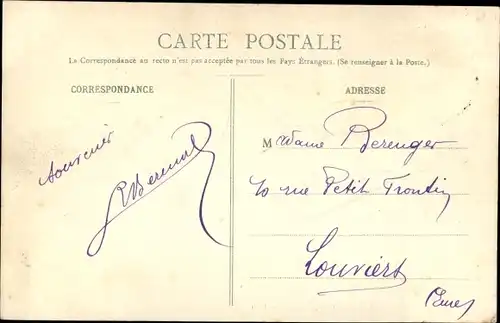 CARTE POSTALE
La Correspondance au recto n'est pas acceptée par tous les Pays Étrangers. (Se renseigner à la Poste.)
CORRESPONDANCE
ADRESSE
Souvenir
Madame Berenger
10 rue Petit Frontin
Louviers
(Eure)